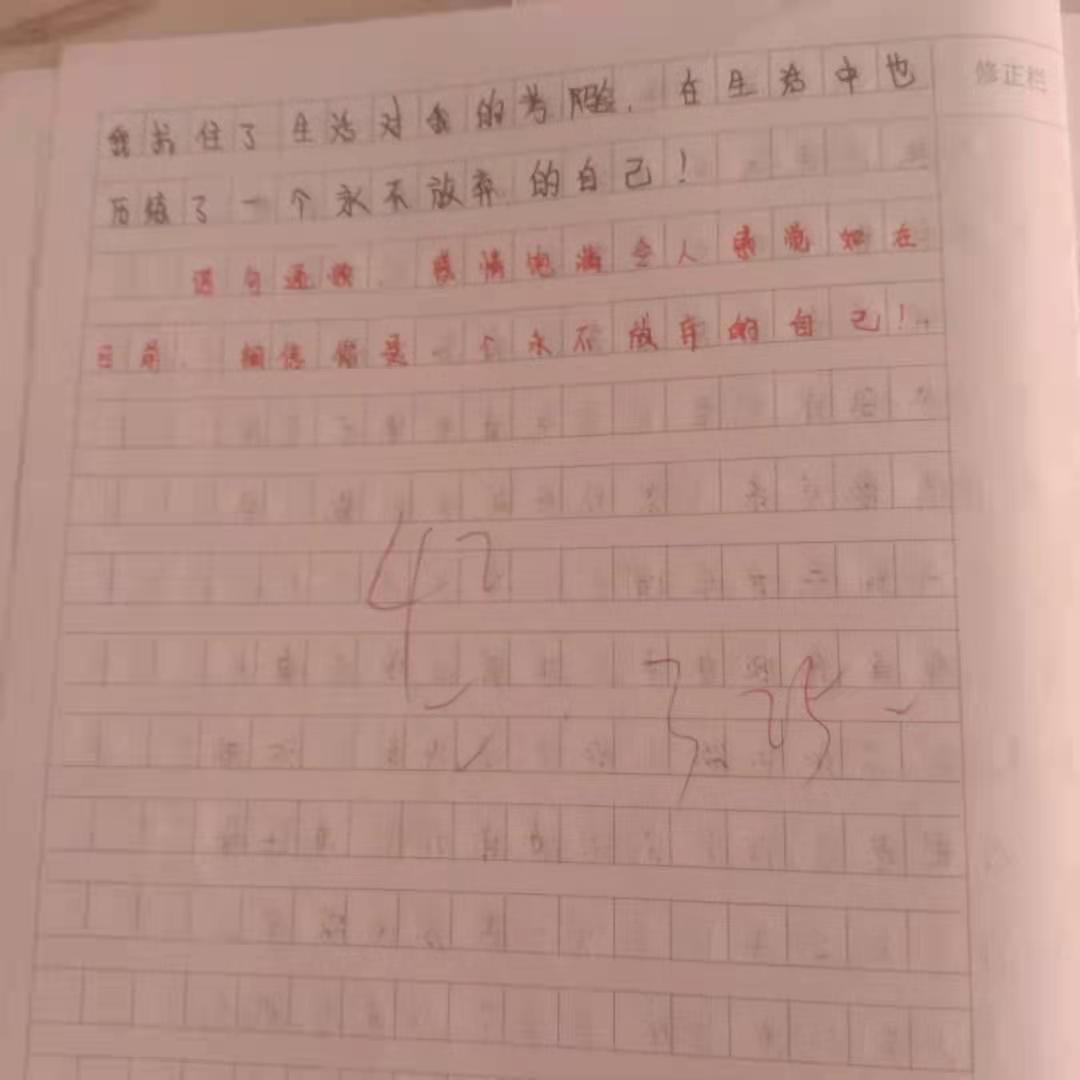 修正栏
我抗住了生活对我的考验，在生活中也
历练了一个永不放弃的自己！
语句通顺，感情饱满令人感觉如在
目前，相信你是一个永不放弃的自己！
42
3.25